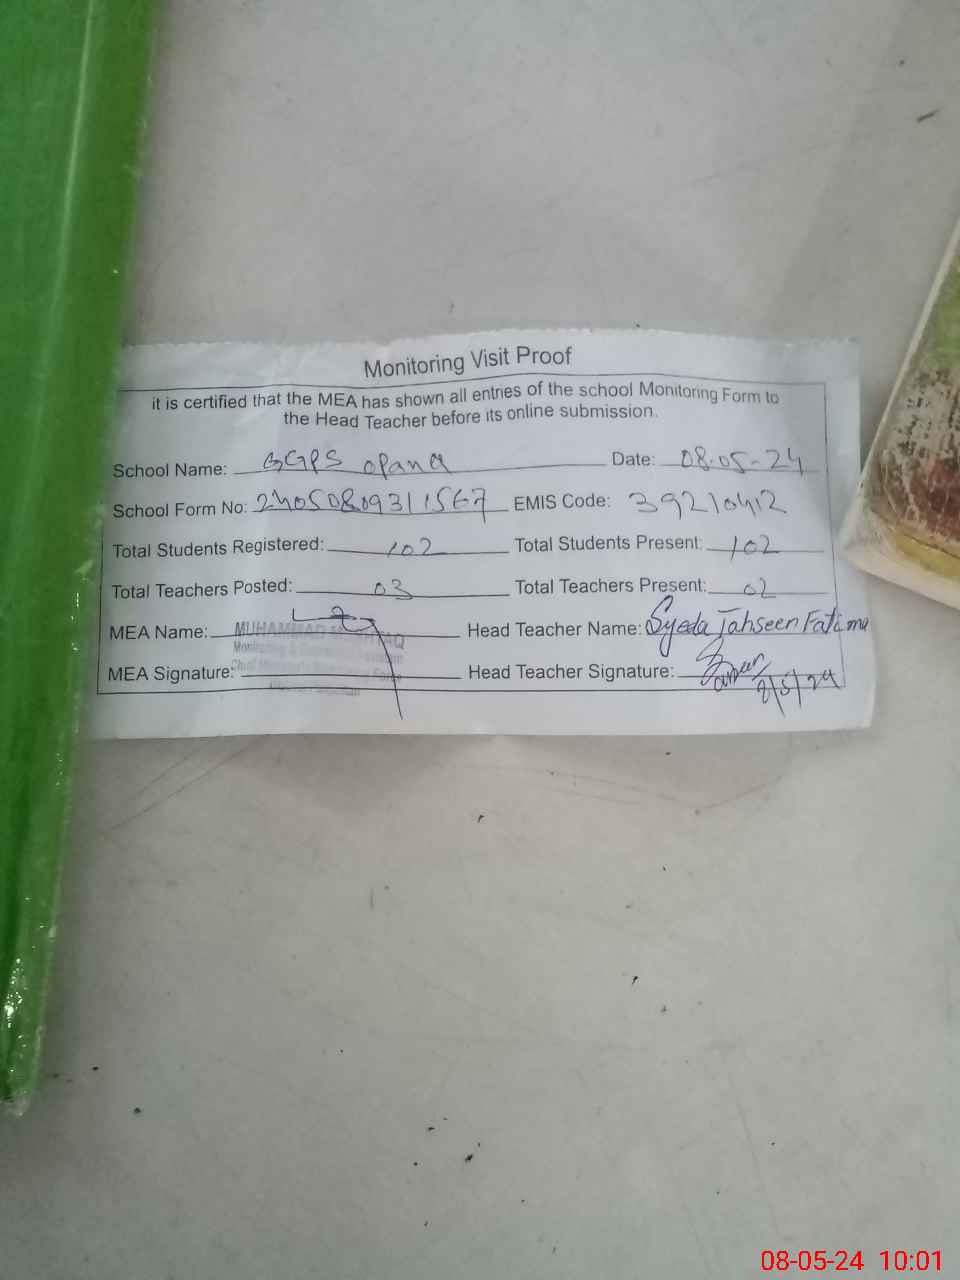 Monitoring Visit Proof
it is certified that the MEA has shown all entries of the school Monitoring Form to
the Head Teacher before its online submission.
School Name: GGPS opana Date: 08-05-24
School Form No: 24050809311567 EMIS Code: 39210412
Total Students Registered: 102 Total Students Present: 102
Total Teachers Posted: 03 Total Teachers Present: 02
MEA Name: MUHAMMAD Head Teacher Name: Syeda Tahseen Fatima
MEA Signature: Head Teacher Signature:
8/5/24
08-05-24 10:01